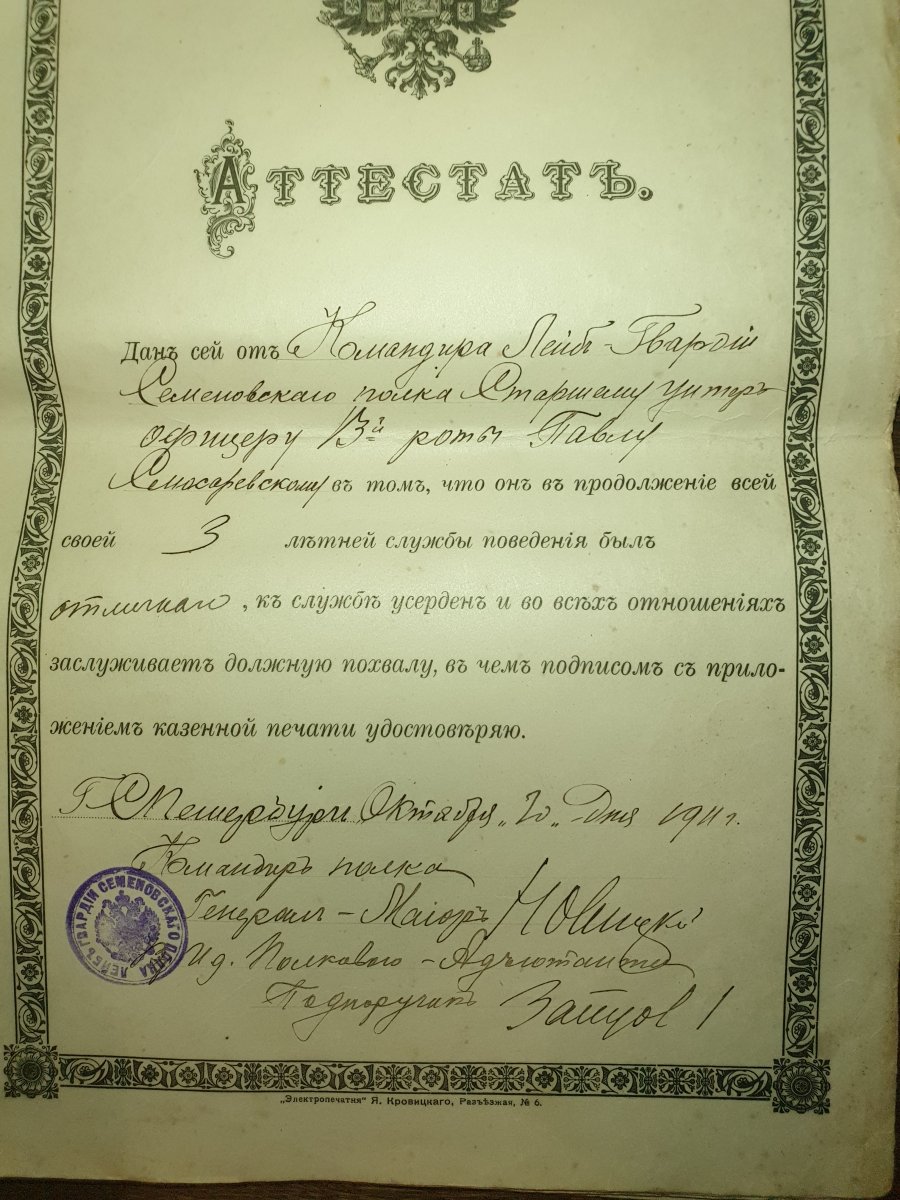 Аттестатъ.
Данъ сей отъ Командира Лейбъ-Гвардіи
Семеновскаго полка Старшему унтеръ
офицеру 13й роты Павлу
Сносаревскому въ томъ, что онъ въ продолженіе всей
своей 3 лѣтней службы поведенія былъ
отличнаго, къ службѣ усерденъ и во всѣхъ отношеніяхъ
заслуживаетъ должную похвалу, въ чемъ подписомъ съ прило-
женіемъ казенной печати удостовѣряю.
Г. СПетербургъ Октября „20„ Дня 1911 г.
Командиръ полка
Генералъ-Маіоръ Новицкій
И.д. Полкового-Адъютанта
Подпоручикъ Зайцов I
ЛЕЙБЪ ГВАРДІИ СЕМЕНОВСКАГО ПОЛКА
„Электропечатня" Я. Кровицкаго, Разъѣзжая, № 6.